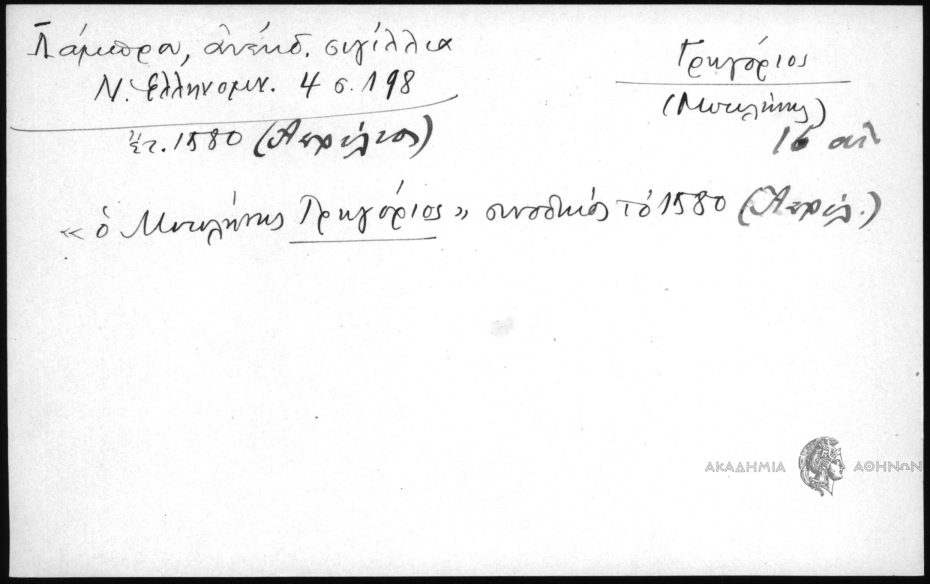 Λάμπρου, ἀνέκδ. σιγίλλια
Ν. Ἑλληνομν. 4 σ. 198
ἔτ. 1580 (Ἀπρίλιος)
Γρηγόριος
(Μυτιλήνης)
16 αἰ.
« ὁ Μυτιλήνης Γρηγόριος » συνοδικός τό 1580 (Ἀπρίλ.)
ΑΚΑΔΗΜΙΑ ΑΘΗΝΩΝ